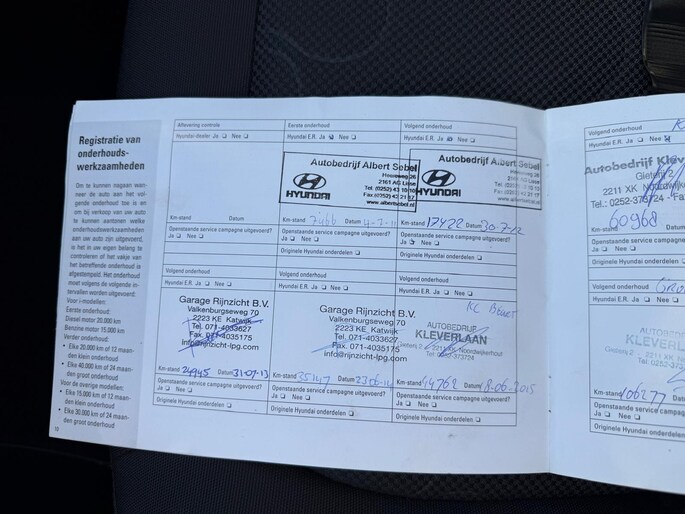 Registratie van
onderhouds-
werkzaamheden
Om te kunnen nagaan wan-
neer de auto aan het vol-
gende onderhoud toe is en
om bij verkoop van uw auto
te kunnen aantonen welke
onderhoudswerkzaamheden
aan uw auto zijn uitgevoerd,
is het in uw eigen belang te
controleren of het vakje van
het betreffende onderhoud is
afgestempeld. Het onderhoud
moet volgens de volgende in-
tervallen worden uitgevoerd:
Voor i-modellen:
Eerste onderhoud:
Diesel motor 20.000 km
Benzine motor 15.000 km
Verder onderhoud:
• Elke 20.000 km of 12 maan-
den klein onderhoud
• Elke 40.000 km of 24 maan-
den groot onderhoud
Voor de overige modellen:
• Elke 15.000 km of 12 maan-
den klein onderhoud
• Elke 30.000 km of 24 maan-
den groot onderhoud
Aflevering controle
Hyundai-dealer Ja Nee
Km-stand Datum
Openstaande service campagne uitgevoerd?
Ja Nee
Eerste onderhoud
Hyundai E.R. Ja Nee
Autobedrijf Albert Sebel
Heereweg 26
2161 AG Lisse
Tel. (0252) 43 10 10
Fax (0252) 43 21 87
www.albertsebel.nl
HYUNDAI
Km-stand Datum
Openstaande service campagne uitgevoerd?
Ja Nee
Originele Hyundai onderdelen
Volgend onderhoud
Hyundai E.R. Ja Nee
Autobedrijf Albert Sebel
HYUNDAI
Km-stand 17422 Datum 30-7-12
Openstaande service campagne uitgevoerd?
Ja Nee
Originele Hyundai onderdelen
Volgend onderhoud
Hyundai E.R. Ja Nee
Garage Rijnzicht B.V.
Valkenburgseweg 70
2223 KE Katwijk
Tel. 071-4033627
Fax. 071-4035175
info@rijnzicht-lpg.com
Km-stand 24945 Datum 31-07-13
Openstaande service campagne uitgevoerd?
Ja Nee
Originele Hyundai onderdelen
Volgend onderhoud
Hyundai E.R. Ja Nee
Garage Rijnzicht B.V.
Valkenburgseweg 70
2223 KE Katwijk
Tel. 071-4033627
Fax. 071-4035175
info@rijnzicht-lpg.com
Km-stand 35147 Datum
Openstaande service campagne uitgevoerd?
Ja Nee
Originele Hyundai onderdelen
Volgend onderhoud
Hyundai E.R. Ja Nee
KL Beurt
AUTOBEDRIJF
KLEVERLAAN
Km-stand 44762 Datum 18-06-2015
Openstaande service campagne uitgevoerd?
Ja Nee
Originele Hyundai onderdelen
Volgend onderhoud
Hyundai E.R. Ja Nee
Autobedrijf
Gieterij 2
2211 XK
Tel.: 0252-373724
Km-stand
60968
Openstaande service
Ja Nee
Originele Hyundai
Volgend onderhoud
Hyundai E.R. Ja
KLEVERL
Gieterij 2
2211 XK
Tel. 0252-373
Km-stand 106277
Openstaande service
Ja Nee
Originele Hyundai